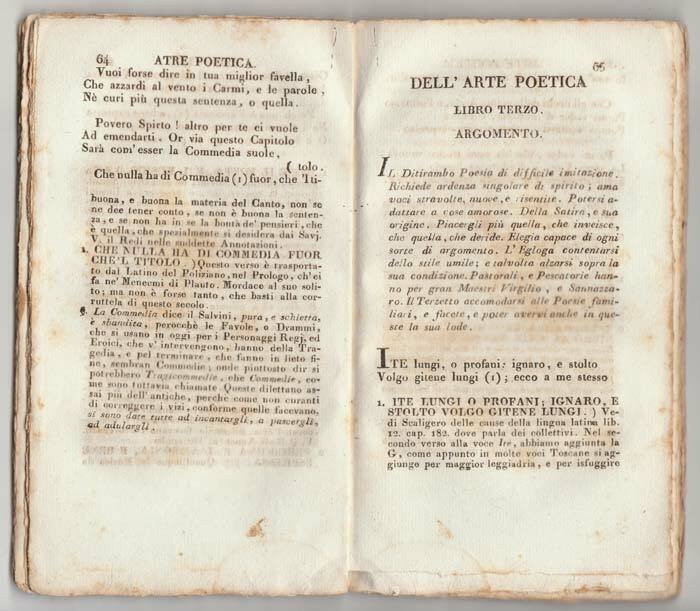 64 ATRE POETICA.
Vuoi forse dire in tua miglior favella,
Che azzardi al vento i Carmi, e le parole,
Nè curi più questa sentenza, o quella.
Povero Spirto! altro per te ci vuole
Ad emendarti. Or via questo Capitolo
Sarà com' esser la Commedia suole,
( tolo.
Che nulla ha di Commedia (1) fuor, che 'l ti-
buona, e buona la materia del Canto, non se
ne dee tener conto, se non è buona la senten-
za, e se non ha in se la bontà de' pensieri, che
è quella, che spezialmente si desidera dai Savj.
V. il Redi nelle suddette Annotazioni.
1. CHE NULLA HA DI COMMEDIA FUOR
CHE 'L TITOLO. ) Questo verso è trasporta-
to dal Latino del Poliziano, nel Prologo, ch' ei
fa ne' Menecmi di Plauto. Mordace al suo soli-
to; ma non è forse tanto, che basti alla cor-
ruttela di questo secolo.
La Commedia dice il Salvini, pura, e schietta,
è sbandita, perocchè le Favole, o Drammi,
che si usano in oggi per i Personaggi Regj, ed
Eroici, che v' intervengono, hanno della Tra-
gedia, e pel terminare, che fanno in lieto fi-
ne, sembran Commedie; onde piuttosto dir si
potrebbero Tragicommedie, che Commedie, co-
me sono tuttavia chiamate Queste dilettano as-
sai più dell' antiche, perchè come non curanti
di correggere i vizj, conforme quelle facevano,
si sono date tutte ad incantargli, a pascergli,
ad adulargli.
65
DELL' ARTE POETICA
LIBRO TERZO.
ARGOMENTO.
IL Ditirambo Poesia di difficile imitazione.
Richiede ardenza singolare di spirito; ama
voci stravolte, nuove, e risentite. Potersi a-
dattare a cose amorose. Della Satira, e sua
origine. Piacergli più quella, che inveisce,
che quella, che deride. Elegia capace di ogni
sorte di argomento. L' Egloga contentarsi
dello stile umile; e talvolta alzarsi sopra la
sua condizione. Pastorali, e Pescatorie han-
no per gran Maestri Virgilio, e Sannazza-
ro. Il Terzetto accomodarsi alle Poesie fami-
liari, e facete, e poter avervi anche in que-
ste la sua lode.
ITE lungi, o profani; ignaro, e stolto
Volgo gitene lungi (1); ecco a me stesso
1. ITE LUNGI O PROFANI; IGNARO, E
STOLTO VOLGO GITENE LUNGI. ) Ve-
di Scaligero delle cause della lingua latina lib.
12. cap. 182. dove parla dei collettivi. Nel se-
condo verso alla voce Ite, abbiamo aggiunta la
G, come appunto in molte voci Toscane si ag-
giungo per maggior leggiadria, e per isfuggire